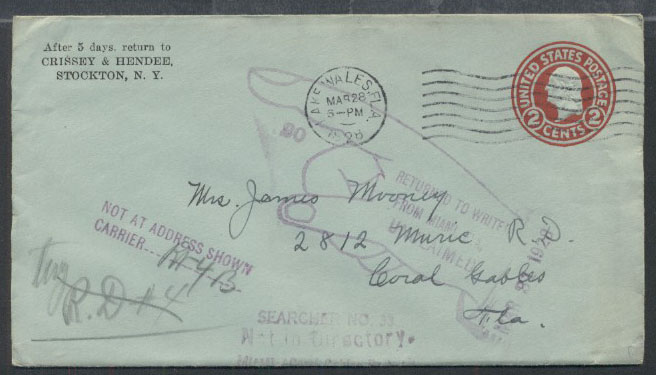 After 5 days, return to
CRISSEY & HENDEE,
STOCKTON, N. Y.
LAKE WALES, FLA.
MAR 28
6-PM
UNITED STATES POSTAGE
2 CENTS 2
Mrs. James Mooney
2812 Music R.D.
Coral Gables
Fla.
RETURNED TO WRITER
FROM MIAMI
NOT AT ADDRESS SHOWN
CARRIER
Try
R.D #4
SEARCHER NO.
Not in Directory.